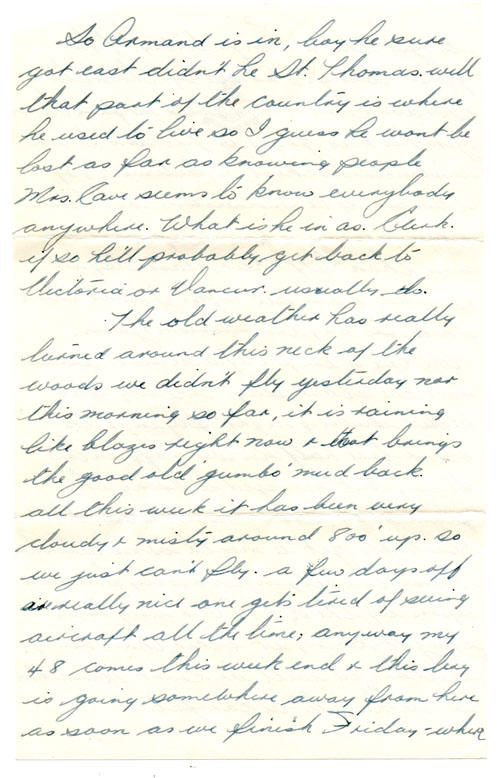 So Armand is in, boy he sure
got east didn't he St. Thomas. well
that part of the country is where
he used to live so I guess he wont be
lost as far as knowing people
Mrs. Cave seems to know everybody
anywhere. What is he in as. Clerk.
if so he'll probably get back to
Victoria or Vancur. usually do.
The old weather has really
turned around this neck of the
woods we didn't fly yesterday nor
this morning so far, it is raining
like blazes right now & that brings
the good old 'gumbo' mud back.
all this week it has been very
cloudy & misty around 800' up. so
we just can't fly. a few days off
are really nice one gets tired of seeing
aircraft all the time; anyway my
48 comes this week end & this boy
is going somewhere away from here
as soon as we finish Friday - where